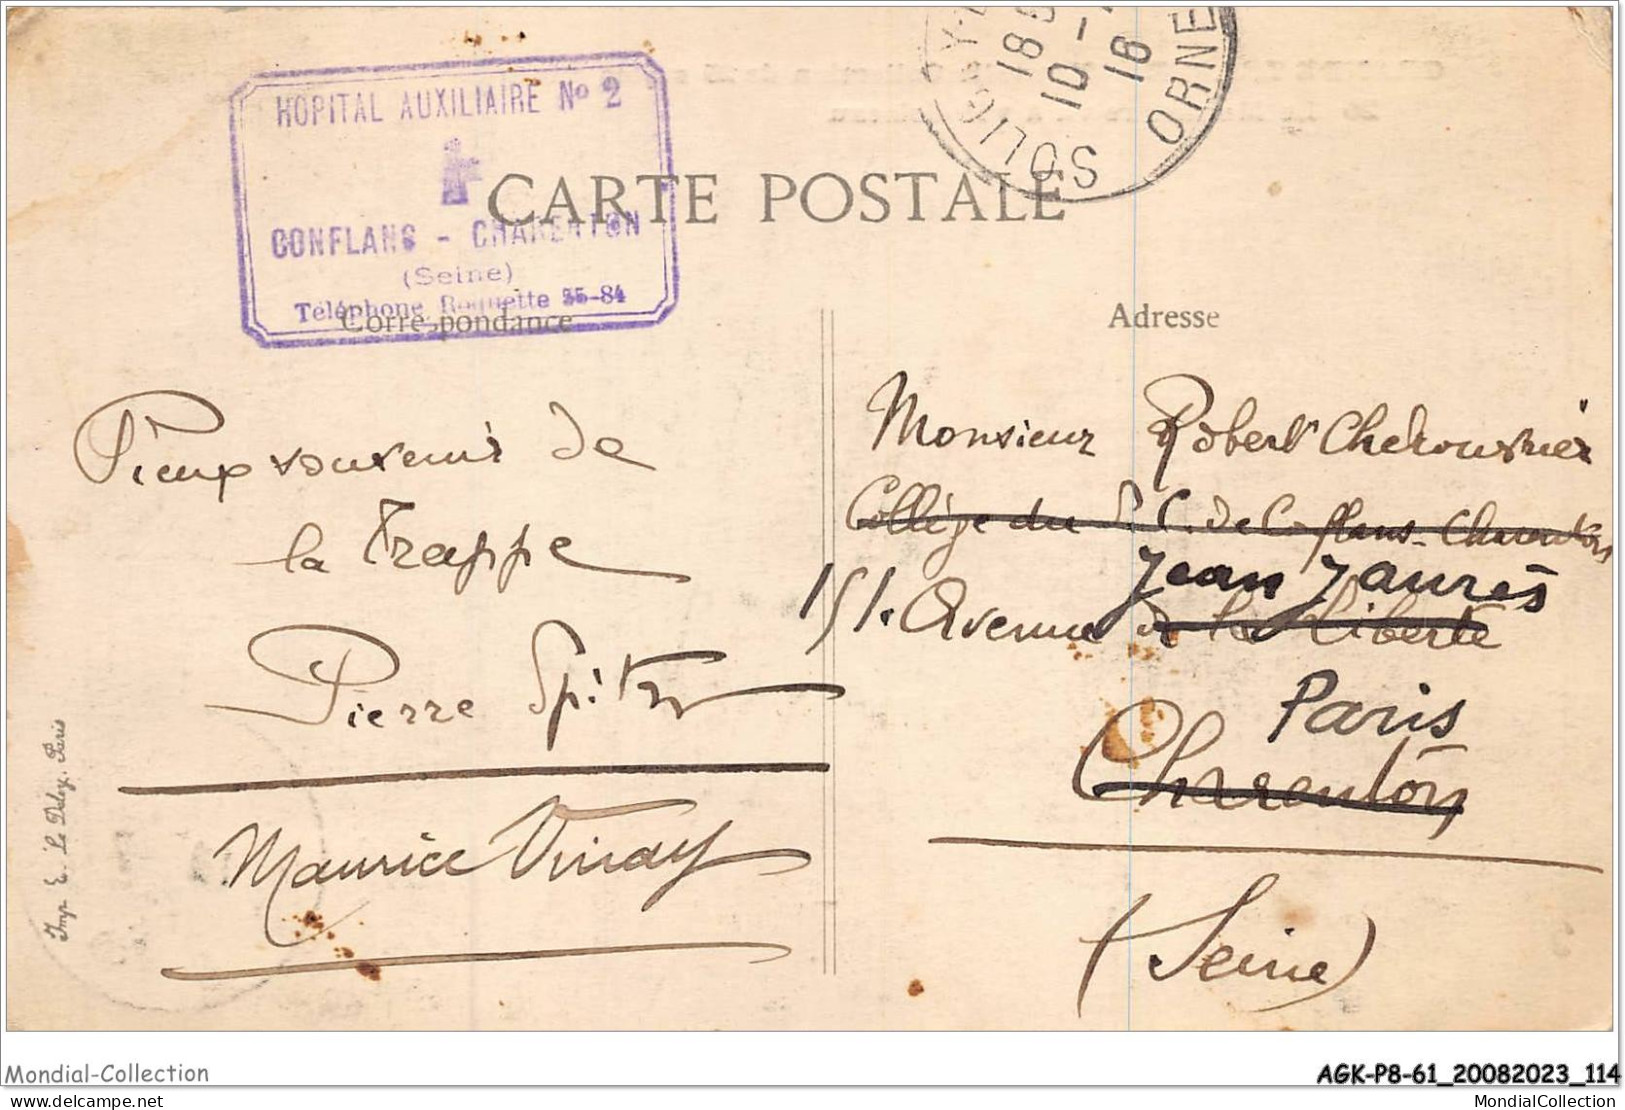 HOPITAL AUXILIAIRE No 2
CONFLANS - CHARENTON
(Seine)
Téléphone Roquette 35-84
SOLIGNY-
18
10 -
16
ORNE
CARTE POSTALE
Correspondance
Adresse
Pieux souvenir de
la Trappe
Pierre Spitz
Maurice Vinay
Monsieur Robert
Collège du P. C. de Conflans-Charenton
Jean Jaurès
151. Avenue de la Liberté
Paris
Charenton
(Seine)
Imp. E. Le Deley, Paris
Mondial-Collection
AGK-P8-61_20082023_114
delcampe.net
MondialCollection